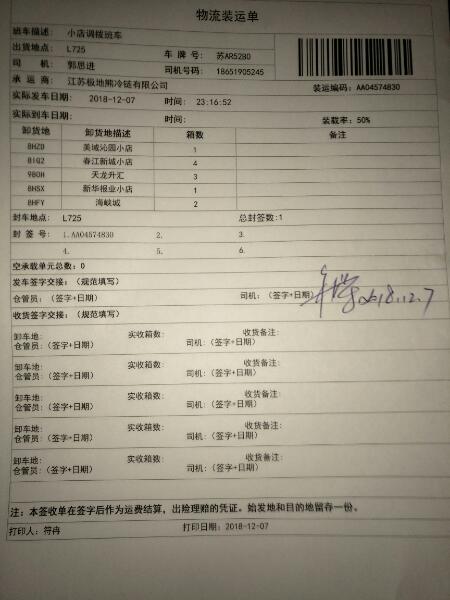 物流装运单
班车描述: 小店调拨班车
出货地点: L725 车 牌 号: 苏AR5280
司 机: 郭思进 司机号码: 18651905245
承 运 商: 江苏极地熊冷链有限公司 装运编码: AA04574830
实际发车日期: 2018-12-07 时间: 23:16:52
实际到车日期: 时间: 装载率: 50%
卸货地 卸货地描述 箱数 备注
8HZD 美域沁园小店 1
8IG2 春江新城小店 4
980H 天龙升汇 3
8HSX 新华报业小店 1
8HFY 海峡城 2
封车地点: L725 总封签数:1
封 签 号: 1.AA04574830 2. 3.
4. 5. 6.
空承载单元总数: 0
发车签字交接: (规范填写)
仓管员: (签字+日期) 司机: (签字+日期) 2018.12.7
收货签字交接: (规范填写)
卸车地: 实收箱数: 收货备注:
仓管员: (签字+日期) 司机: (签字+日期)
卸车地: 实收箱数: 收货备注:
仓管员: (签字+日期) 司机: (签字+日期)
卸车地: 实收箱数: 收货备注:
仓管员: (签字+日期) 司机: (签字+日期)
卸车地: 实收箱数: 收货备注:
仓管员: (签字+日期) 司机: (签字+日期)
卸车地: 实收箱数: 收货备注:
仓管员: (签字+日期) 司机: (签字+日期)
注: 本签收单在签字后作为运费结算, 出险理赔的凭证。始发地和目的地留存一份。
打印人: 符冉 打印日期: 2018-12-07